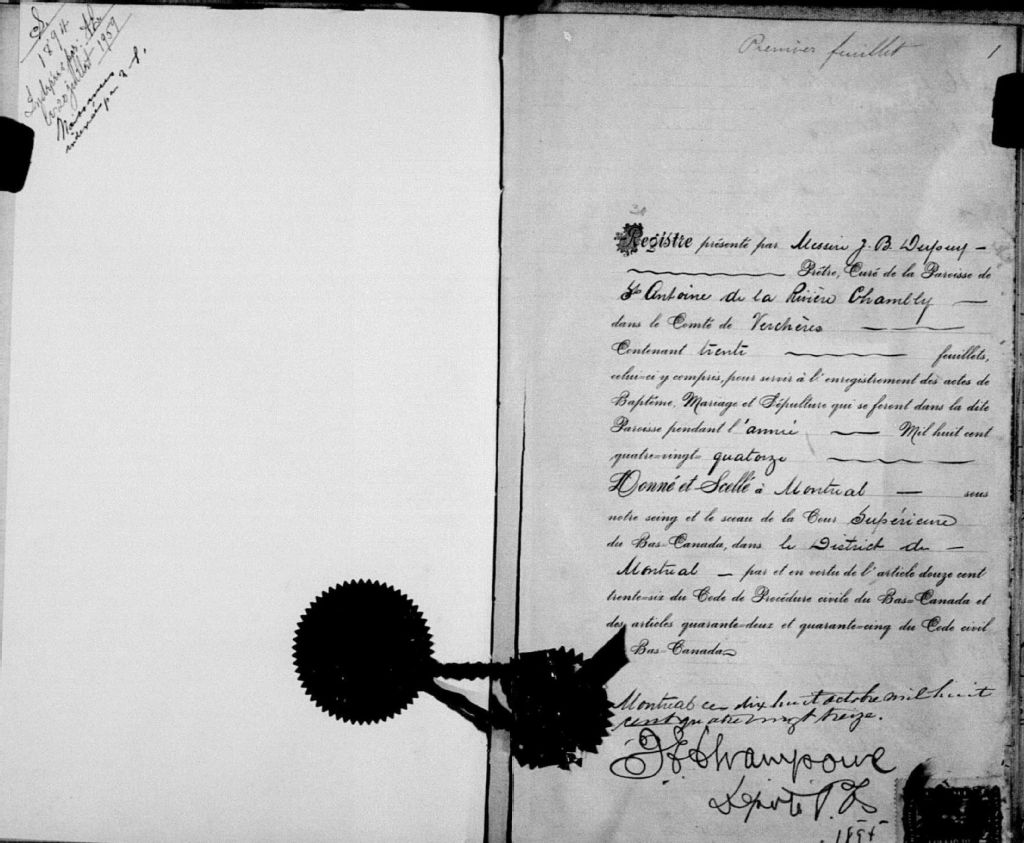 1894
20 juillet 1959
Naissances
Premier feuillet 1
Registre présenté par Messire J. B. Dupuy
Prêtre, Curé de la Paroisse de
St Antoine de la Rivière Chambly
dans le Comté de Verchères
Contenant trente feuillets,
celui=ci y compris, pour servir à l'enregistrement des actes de
Baptême, Mariage et Sépulture qui se feront dans la dite
Paroisse pendant l'année Mil huit cent
quatre=vingt= quatorze
Donné et Scellé à Montreal sous
notre seing et le sceau de la Cour Supérieure
du Bas=Canada, dans le District de
Montreal par et en vertu de l'article douze cent
trente=six du Code de Procédure civile du Bas=Canada et
des articles quarante=deux et quarante=cinq du Code civil
Bas=Canada
Montreal ce dix huit octobre mil huit
cent quatre vingt treize.
Champoux
Député P. S.